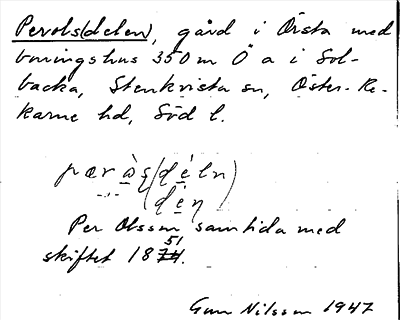 Perols(delen), gård i Örsta med
boningshus 350 m Ö a i Sol-
backa, Stenkvista sn, Öster-Re-
karne hd, Söd l.
pær às(déln)
(dén)
Per Olsson samtida med
51
skiftet 1874.
Gun Nilsson 1947